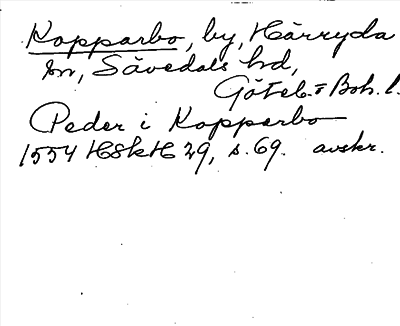 Kopparbo, by, Härryda
sn, Sävedals hd,
Göteb. o Boh. l.
Peder i Kopparbo
1554 HSkH 29, s. 69. avskr.